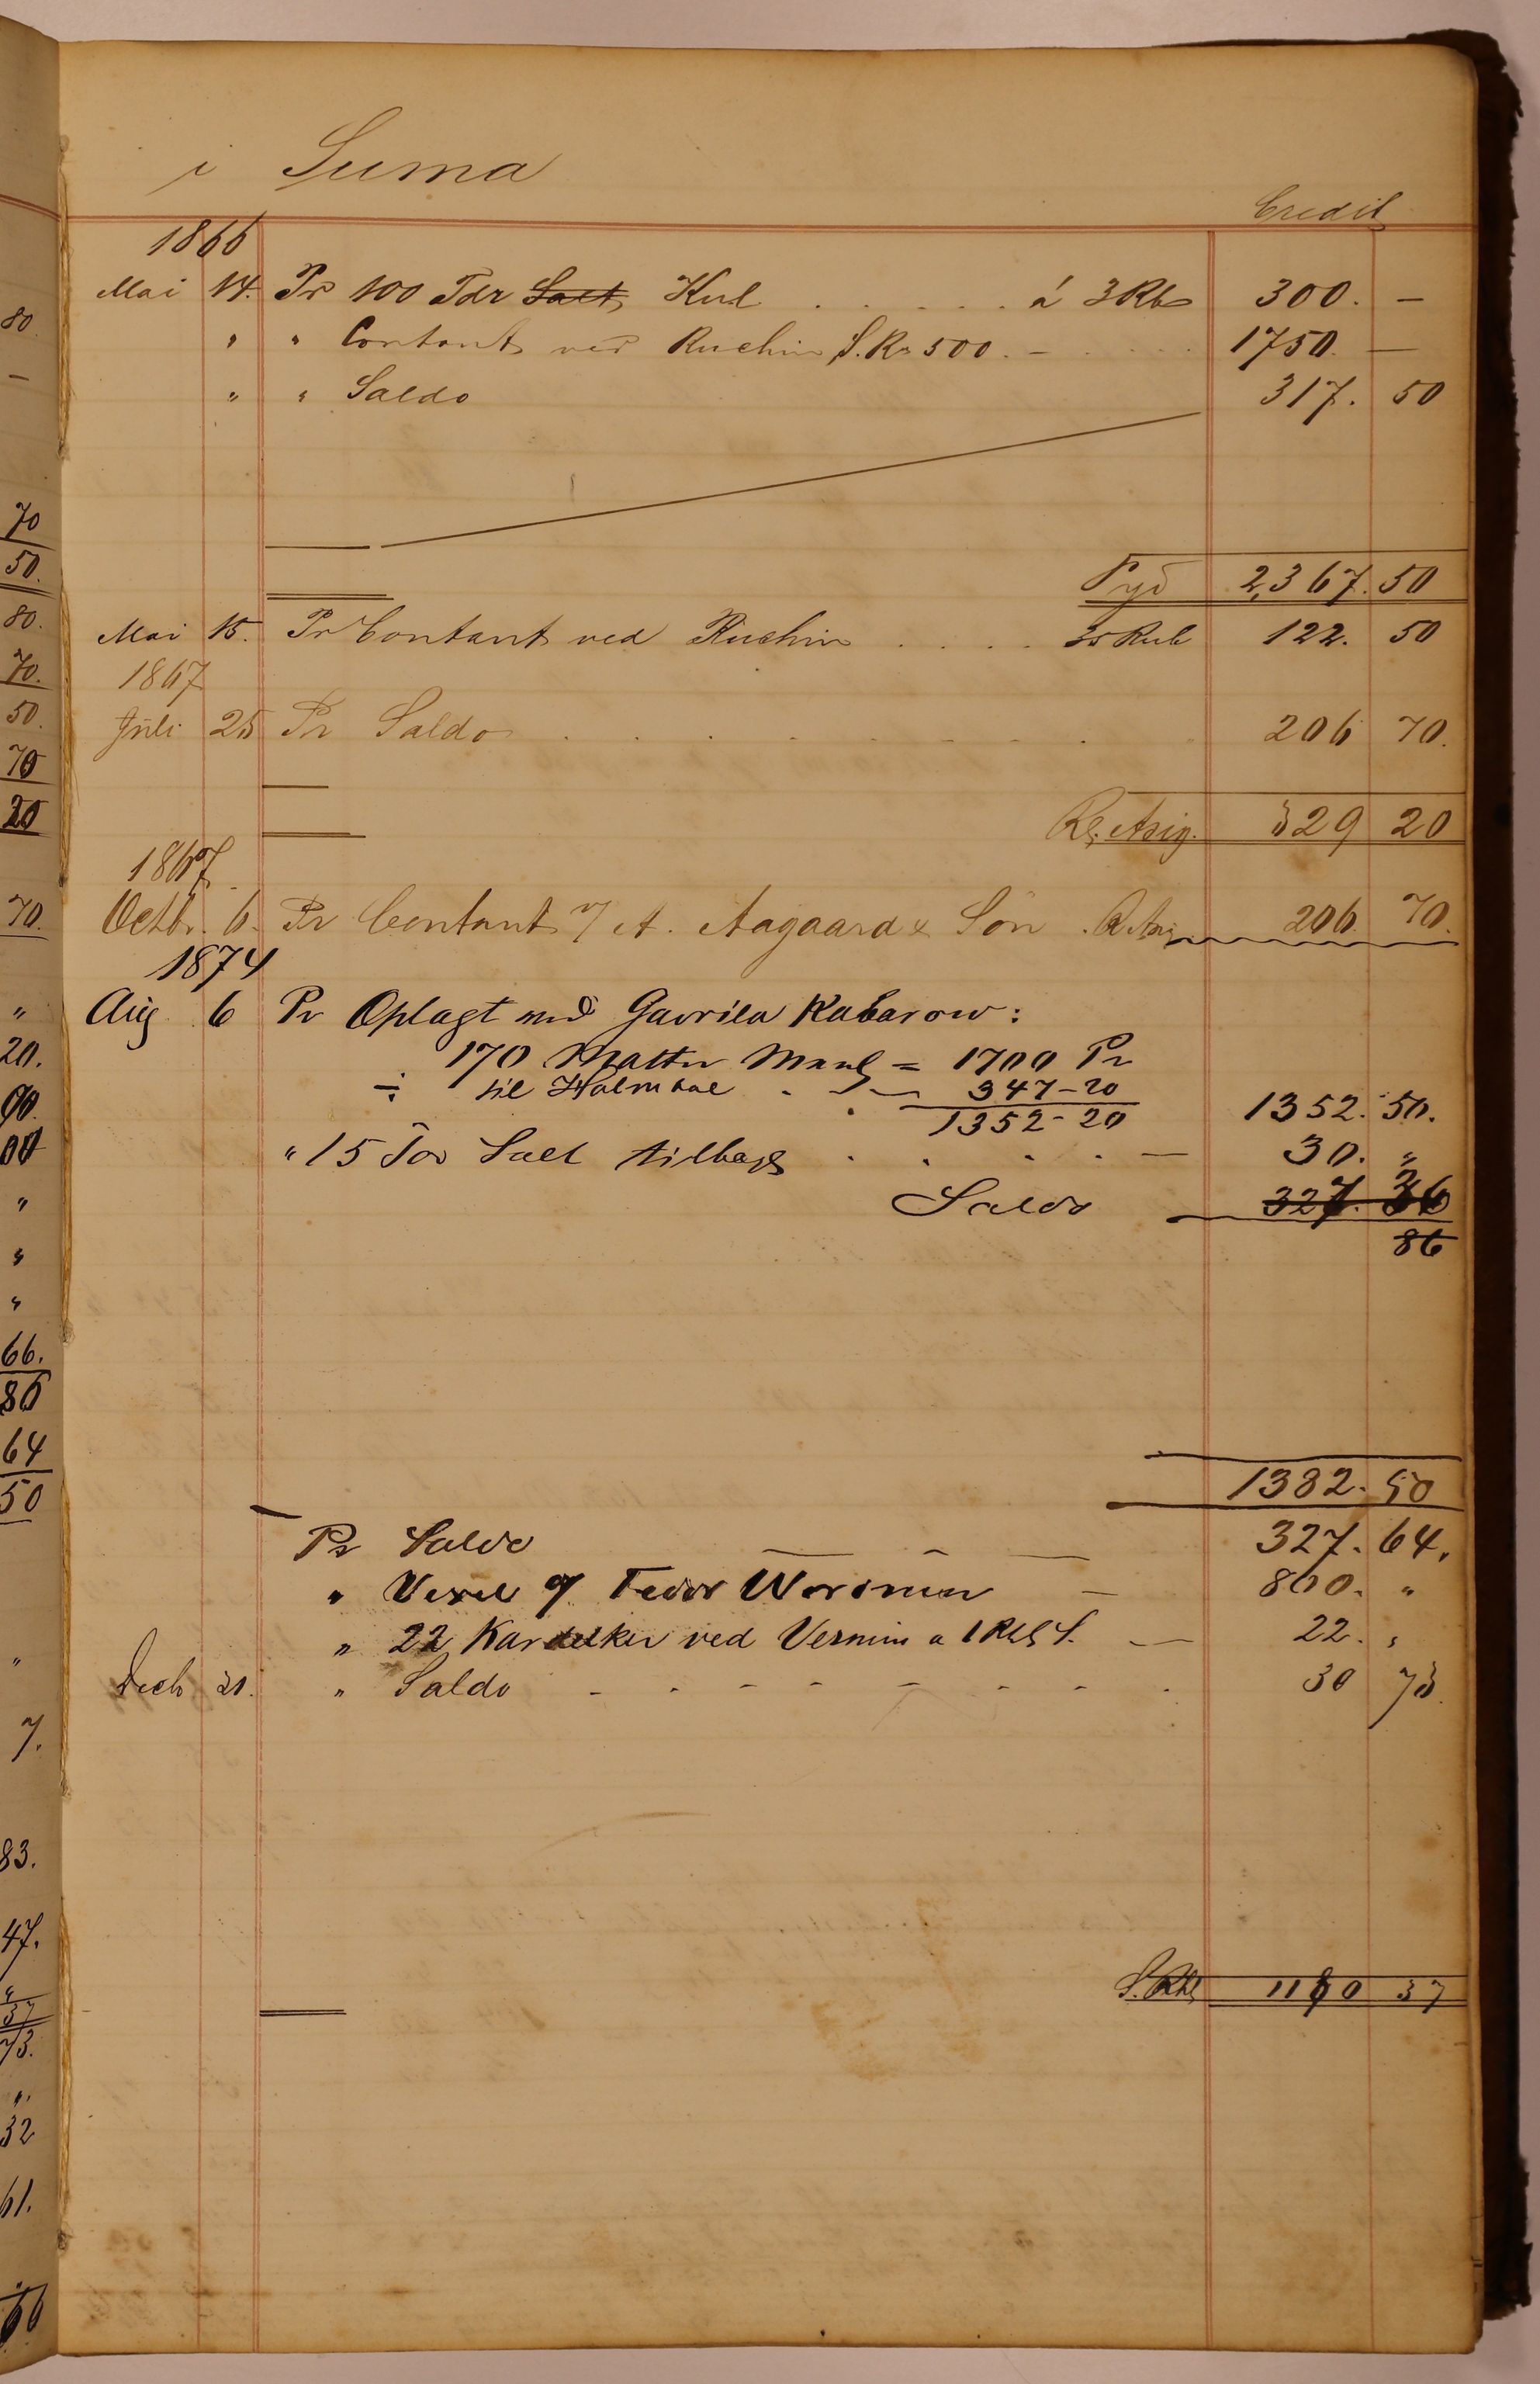 i Suma
Credit
1866
Mai 14. Pr 100 Tdr Salt Kul . . . . . á 3 Rb 300. —
" " Contant ved Ruchin S. Ro 500. — 1750. —
" " Saldo 317. 50
2,367. 50
Mai 15. Pr Contant ved Ruchin . . . . 35 Rub 122. 50
1867
Juli 25 Pr Saldo . . . . . . . 206 70.
Ro. Asig. 329 20
1867
Octbr. 6. Pr Contant A. Aagaard & Sön . R. Asig 206. 70.
1874
Aug 6 Pr Oplagt med Gavrila Kabarow:
170 Matter = 1700 Pr
÷ til . 347-20
1352-20 1352. 50.
" 15 Tdr Salt tilbage . . . . — 30. "
Saldo 327. 36
86
1382. 50
Pr Saldo — — — 327. 64.
" Vexel Fedor — 800. "
" 22 ved a 1 Rbl S. — 22. "
Decb 31. " Saldo - - - - - - - 30 73
S. Rbl 1180 37
80
—
70
50.
80.
70.
50.
70
20
70.
"
20.
90
00
"
"
"
66.
86
64
50
"
7.
83.
47.
"
37
73.
".
32
61.
60